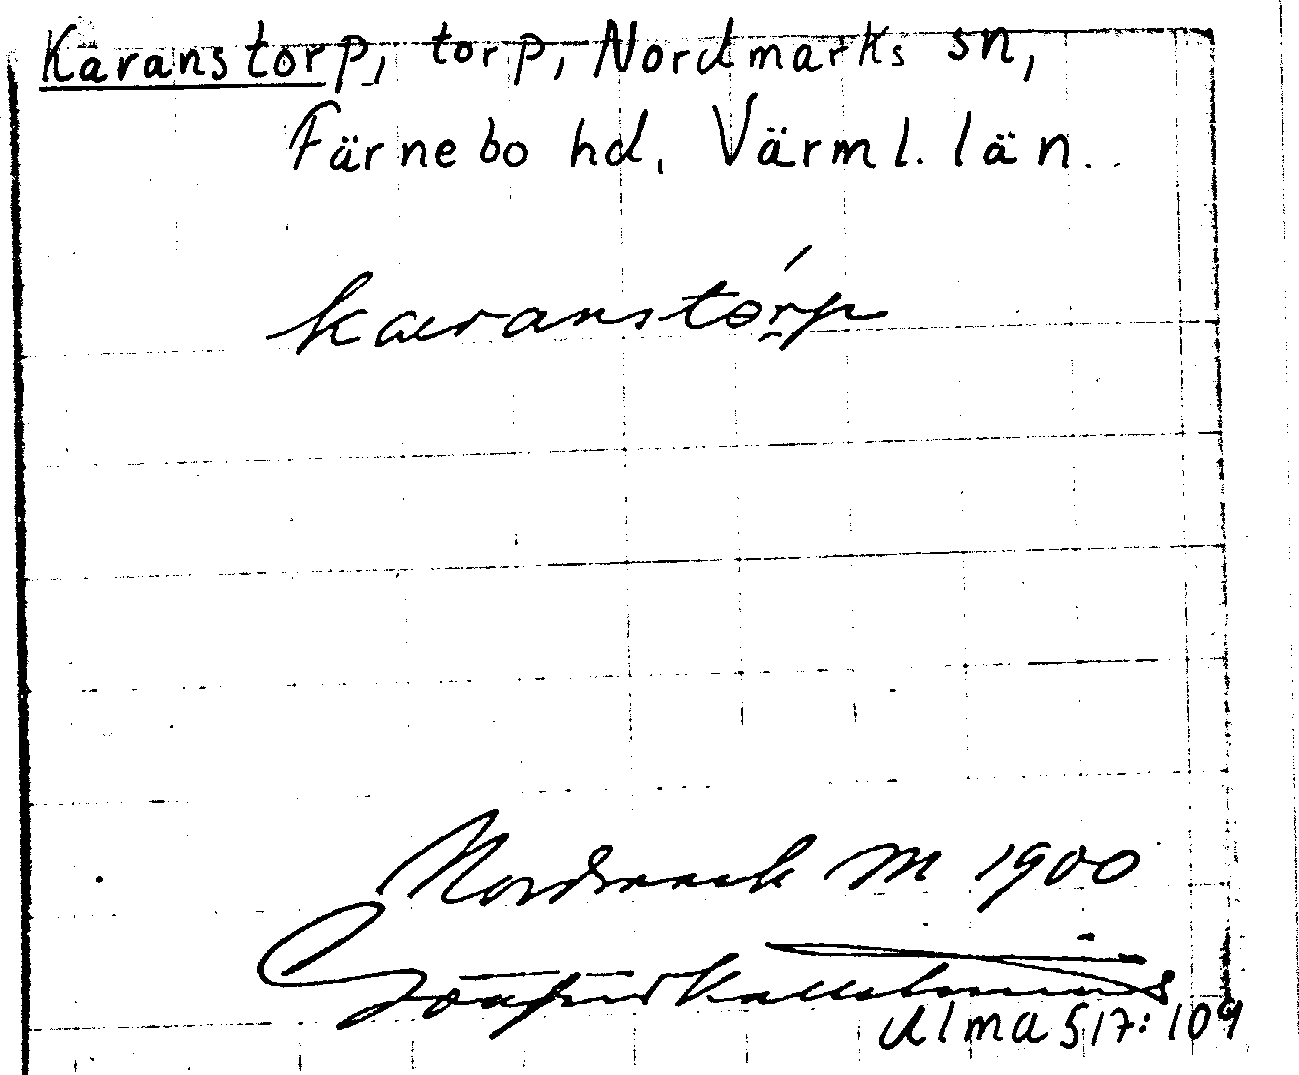 Karanstorp, torp, Nordmarks sn,
Färnebo hd. Värml. län.
karanstórp
Nordmark M 1900
Gösta Kallstenius
Ulma 517:109